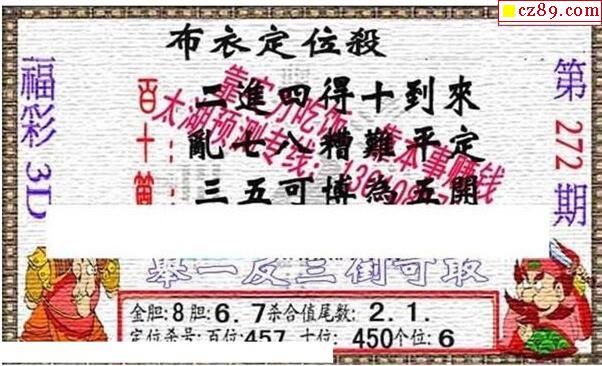 cz89.com
布衣定位殺
福彩 3D
第 272 期
百:二進四得十到來
十:亂七八糟難平定
三五可博為五開
靠实力吃饭 靠本事赚钱
太湖预测专线:
舉一反三倒可取
金胆:8胆:6.7杀合值尾数:2.1.
定位杀号:百位:457 十位:450个位:6